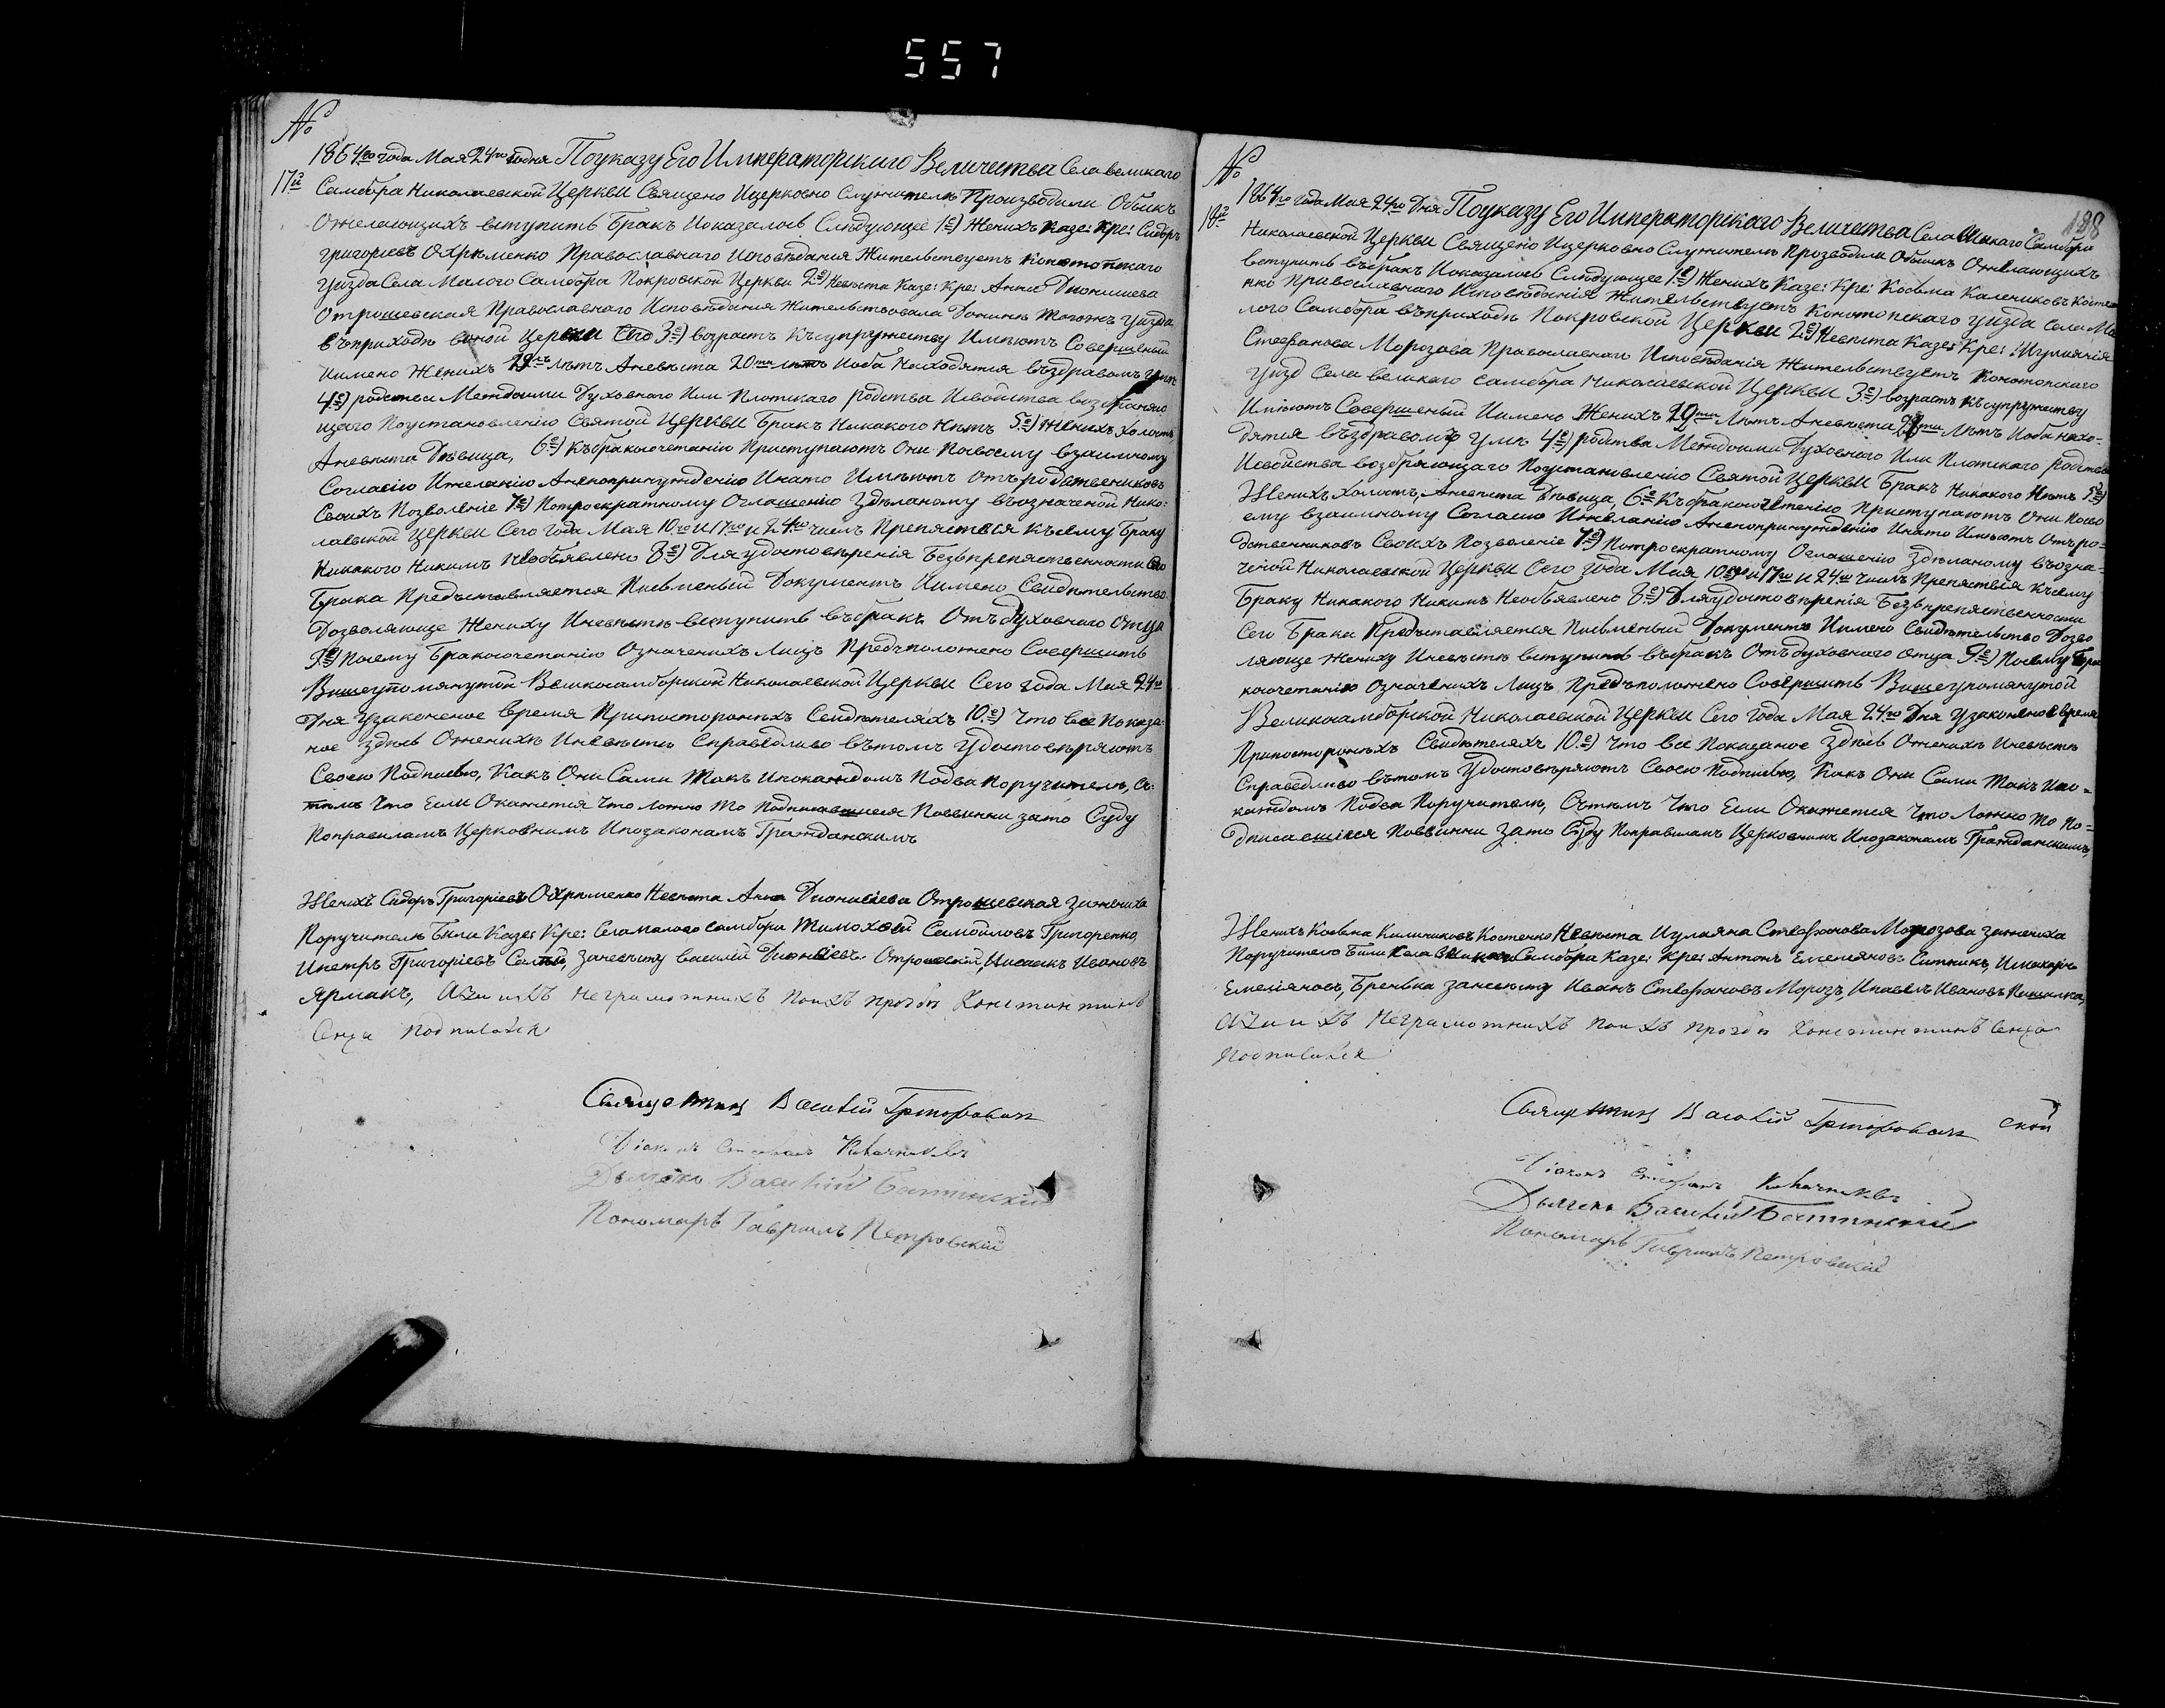 557
№
1864го года Мая 24го дня Поуказу Его Императорскаго Величества Села великаго
17й Самбора Николаевской Церкви Священо Ицерковно Служители Производили Обыскъ
Ожелающихъ вступить Бракъ Иоказалось Слѣдующее 1е) Женихъ Казе: Кре: Сидоръ
григориевъ Охрѣменко Православнаго Исповѣдания Жительствуетъ Конотопскаго
уѣзда Села Малого Самбора Покровской Церкви 2е) Невѣста Казе: Кре: Анна Дионисиева
Отрошевская Православнаго Исповѣдания Жительствовала Донинѣ Тогожъ Уѣзда
въприходѣ оной Церкви Сего 3е) возрастъ Късупружеству Имѣютъ Совершеный
Иимено Женихъ лѣтъ Аневѣста 20ти лѣтъ Иоба Находятся въздравомъ Умѣ
4е) родства Меѣждоими Духовнаго Или Плотскаго родства Исвойства возбраняю
щаго Поустановлению Святой Церкви Бракъ Никакого Нѣтъ 5е) Женихъ Холостъ
Аневѣста Дѣвица, 6е) Къбракосочетанию Приступаютъ Они Посвоему взаимному
Согласию Ижеланию Анепопринуждению Инато Имѣютъ Отъродственниковъ
Своихъ Позволение 7е) Потроекратному Оглашению Здѣланому въозначеной Нико:
лаевской Церкви Сего года Мая 10го и 17го и 24го числъ Препяствия Късему Браку
Никакого Никимъ Необъявлено 8е) Для удостовѣрения Безъпрепяственности Сего
Брака Предъставляется Писменый Документъ Иимено Свидѣтельство
Дозволяюще Жениху Иневѣсте вступить въбракъ Отъ духовнаго Отца
9е) Посему Бракосочетанию Означенихъ Лицъ Предъположено Совершить
Вишеупомянутой Великосамборской Николаевской Церкви Сего года Мая 24го
Дня Узаконеное время Припостороннихъ Свидѣтеляхъ 10.е) Что все Показа:
ное здѣсь Оженихѣ Иневѣстѣ Справедливо вътомъ Удостовѣряютъ
Своею Подписью, Какъ Они Сами Такъ Ипокаждомъ Подва Поручителя, Съ:
тѣмъ Что Если Окажется Что Ложно То Подписавшиеся Повинни зато Суду
Поправиламъ Церковнимъ Ипозаконамъ Гражданскимъ
Женихъ Сидоръ Григориевъ Охрѣменко Невѣста Анна Дионисиева Отрошевская Зажениха
Поручителѣ Били Казе: Кре: Села малого самбора Тимохвѣй Самойловъ Григоренко,
Ипетръ Григориевъ Заневѣсту василий Дионисиевъ Отрошевский, Иванъ
Ярмакъ, Аза ихъ Неграмотнихъ Поихъ прозбѣ Константинъ
Сенча Подписался
Священикъ Василий Григорович
Диаконъ Стефанъ
Дьячокъ Василий
Пономаръ Гавриилъ Петровский
№
188
1864го года Мая 24го Дня Поуказу Его Императорскаго Величества Села Великаго Самбора
18й Николаевской Церкви Священо Ицерковно Служители Прозводили Обыскъ Ожелающихъ
вступить въбракъ Иоказалось Слѣдующее 1е) Женихъ Казе: Кре: Косьма Калениковъ Костен
ко Православнаго Исповѣдания Жительствуетъ Конотопскаго уѣзда Села Ма
лого Самбора въприходѣ Покровской Церкви 2е) Невѣста Казе: Кре: Иулияния
Стефанова Морозова Православнаго Исповѣдания Жительствуетъ Конотопскаго
Уѣзд Села великаго самбора Николаевской Церкви 3е) возрастъ Късупружеству
Имѣютъ Совершеный Иимено Женихъ лѣтъ Аневѣста лѣтъ Иоба нахо-
дятся въздравомъ умѣ 4е) родства Меѣждоими Духовнаго Или Плотскаго родства
Исвойства возбраяющаго Поустановлению Святой Церкви Бракъ Никакого Нѣтъ 5е)
Женихъ Холостъ, Аневѣста Дѣвица, 6е Къбракосочетанию Приступаютъ Они Посво
ему взаимному Согласию Ижеланию Анепопринуждению Инато Имѣютъ Отъро=
дственниковъ Своихъ Позволение 7е) Потроекратному Оглашению Здѣланому въозна=
ченой Николаевской Церкви Сего года Мая 10го и 17го и 24го числъ Препяствия Късему
Браку Никакого Никимъ Необъявлено 8е) Дляудостовѣрения Безъпрепяственности
Сего Брака Предъставляется Письменый Документъ Иимено Свидѣтельство Дозво
ляюще Жениху Иневѣстѣ вступить въбракъ Отъ духовнаго Отца 9е) Посему бра
косочетанию Означенихъ Лицъ Предъположено Совершить Вишеупомянутой
Великосамборской Николаевской Церкви Сего года Мая 24го Дня Узаконеное время
Припостороннихъ Свидѣтеляхъ 10.е) Что все Показаное Здѣсь Оженихѣ Иневѣстѣ
Справедливо вътомъ Удостовѣряютъ Своею Подписью, Какъ Они Сами Такъ Ипо=
каждомъ Подва Поручителю, Сътѣмъ Что Если Окажется Что Ложно То По=
дписавшияся Повинни Зато Суду Поправиламъ Церковнимъ Ипозаконамъ Гражданскимъ,
Женихъ Косьма Калиниковъ Костенко Невѣста Иулияна Стефанова Морозова Зажениха
Поручителѣ Били Села Великаго Самбора Казе: Кре: Антонъ Емелияновъ Ситникъ,
Емелияновъ, Заневѣсту Иванъ Стефановъ Морозъ, Ипавелъ Ивановъ
Аза ихъ Неграмотнихъ Поихъ прозбѣ Константинъ Сенча
Подписался
Священикъ Василий Григорович
Диаконъ Стефанъ
Дьячокъ Василий
Пономаръ Гавриилъ Петровский